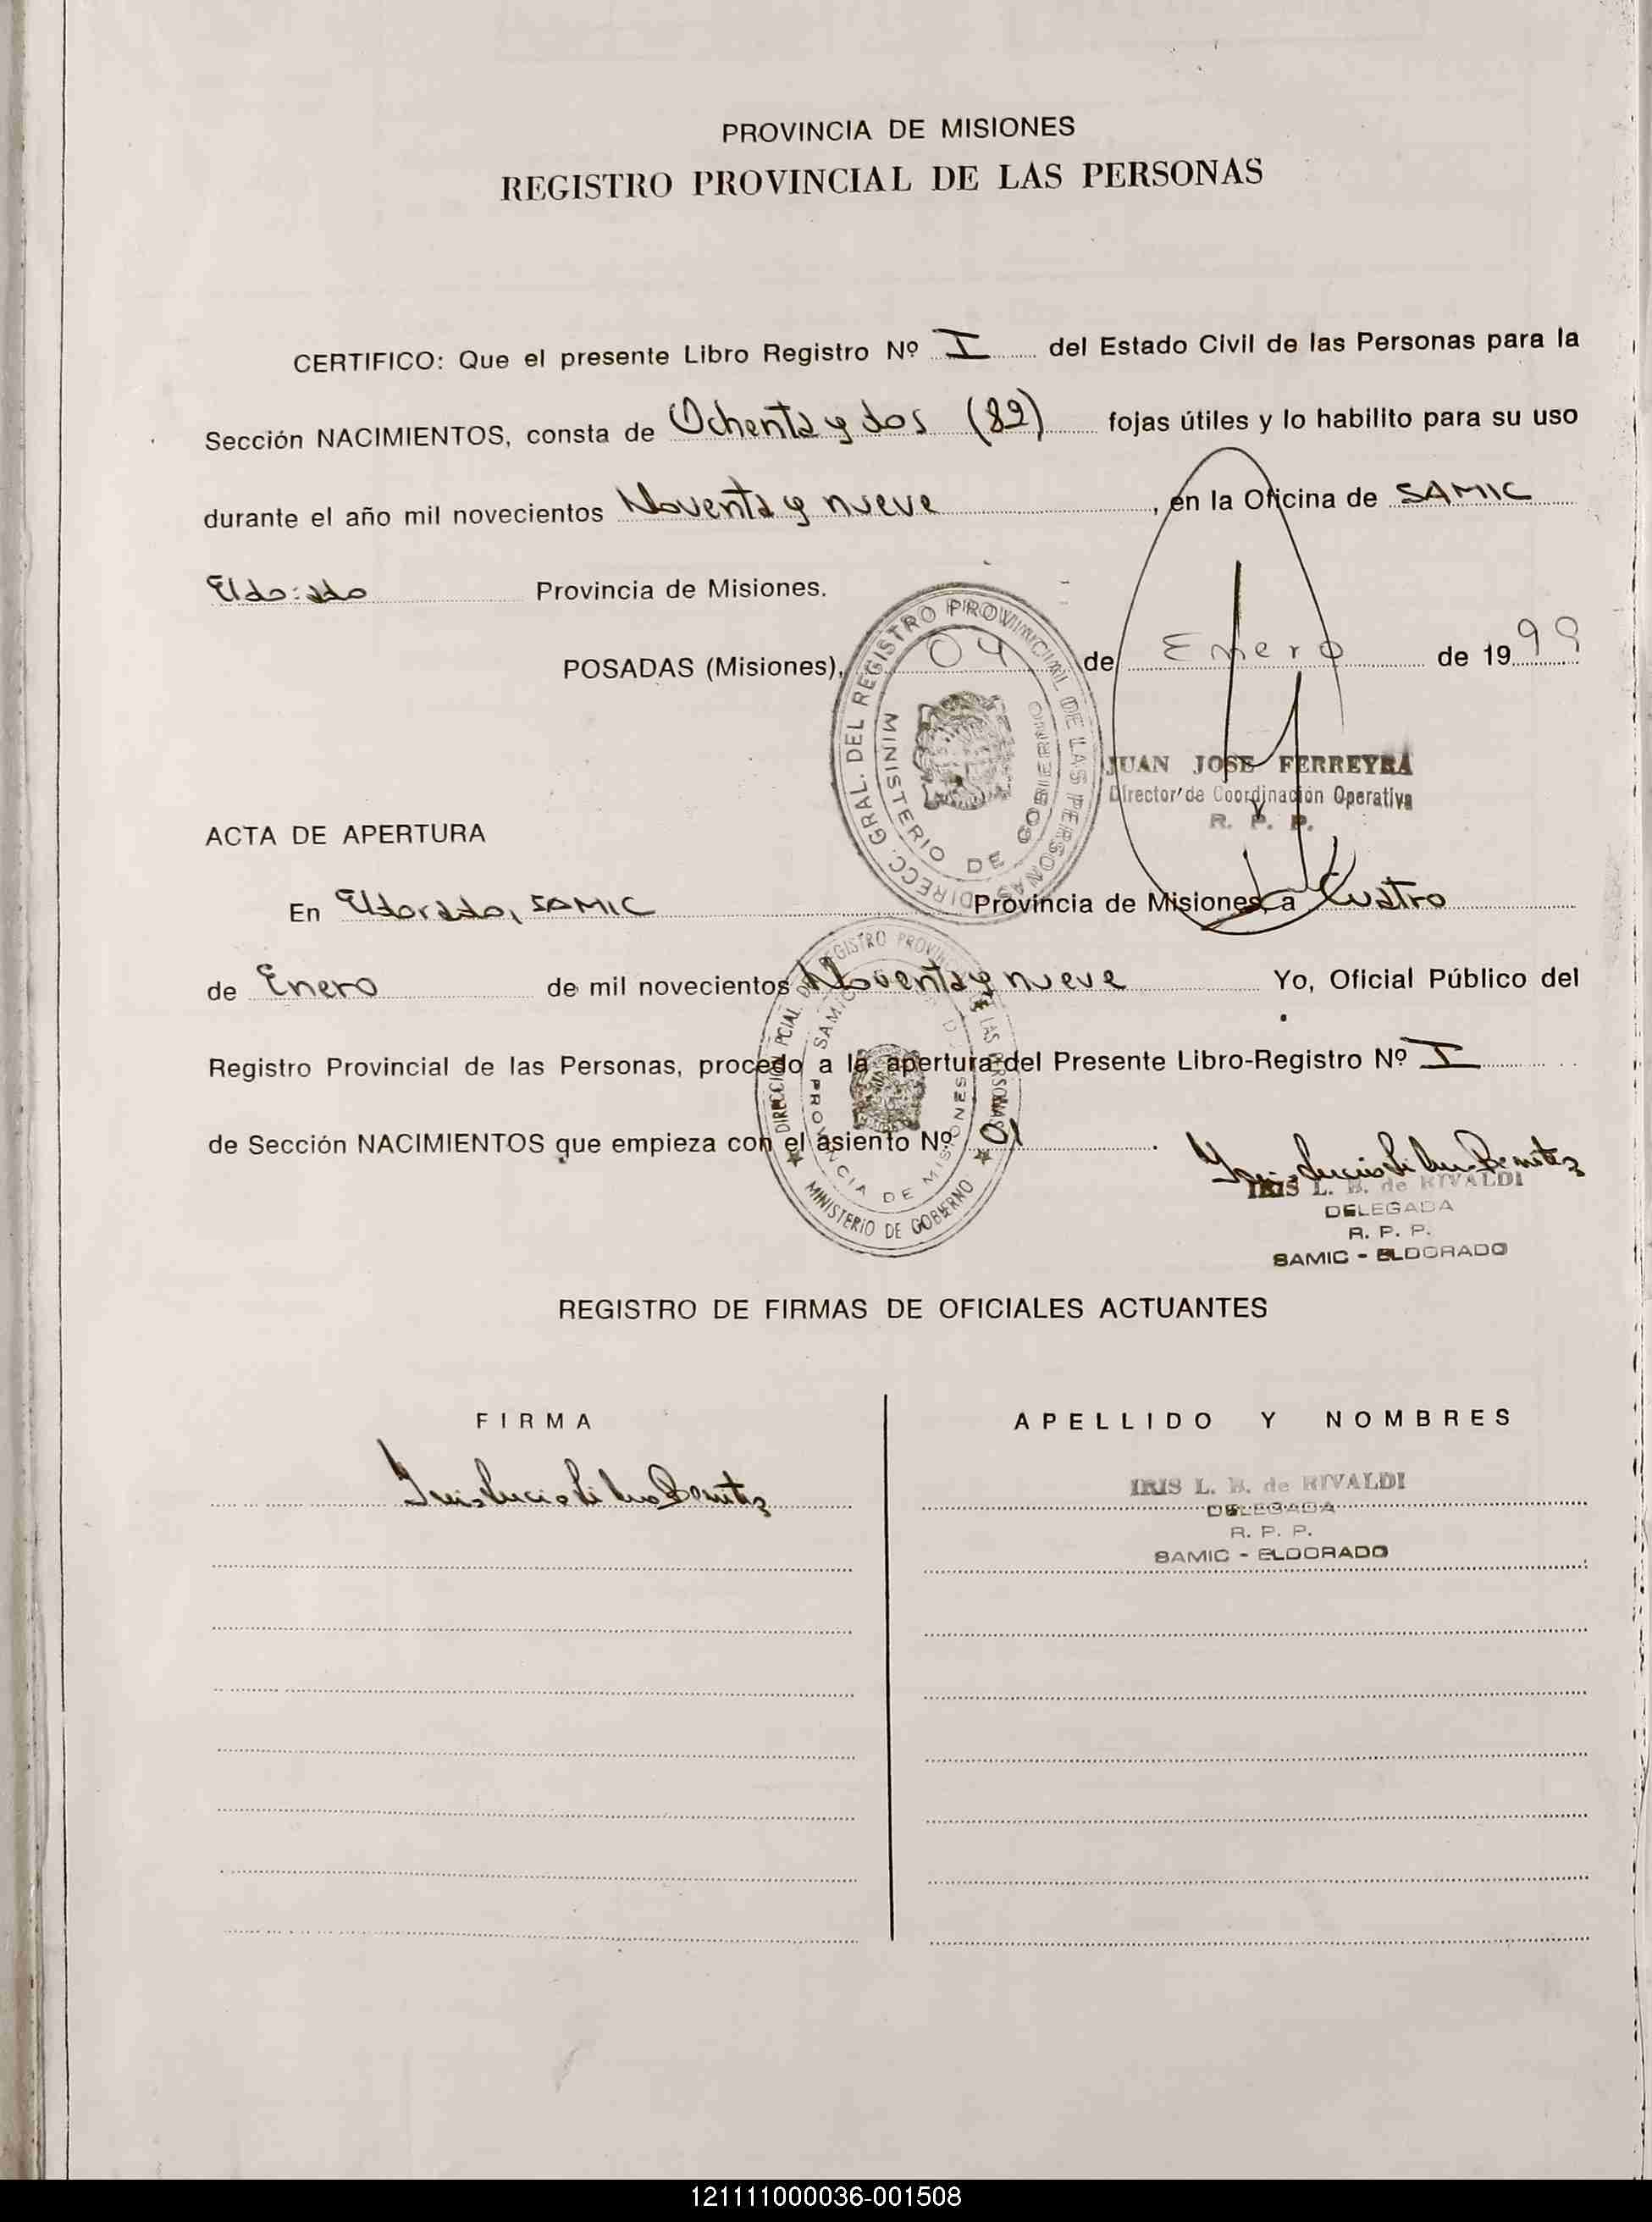 PROVINCIA DE MISIONES
REGISTRO PROVINCIAL DE LAS PERSONAS
CERTIFICO: Que el presente Libro Registro Nº I del Estado Civil de las Personas para la
Sección NACIMIENTOS, consta de Ochenta y dos (82) fojas útiles y lo habilito para su uso
durante el año mil novecientos Noventa y nueve, en la Oficina de SAMIC
Eldorado Provincia de Misiones.
POSADAS (Misiones), 04 de Enero de 1999
DIRECC. GRAL. DEL REGISTRO PROVINCIAL DE LAS PERSONAS
MINISTERIO DE GOBIERNO
JUAN JOSE FERREYRA
Director de Coordinación Operativa
R. P. P.
ACTA DE APERTURA
En Eldorado, SAMIC Provincia de Misiones, a Cuatro
de Enero de mil novecientos Noventa y nueve Yo, Oficial Público del
Registro Provincial de las Personas, procedo a la apertura del Presente Libro-Registro Nº I
de Sección NACIMIENTOS que empieza con el asiento Nº 01.
DIRECCION PCIAL. DEL REGISTRO PROVINCIAL DE LAS PERSONAS
SAMIC
PROVINCIA DE MISIONES
MINISTERIO DE GOBIERNO
Benitez
IRIS L. B. de RIVALDI
DELEGADA
R. P. P.
SAMIC - ELDORADO
REGISTRO DE FIRMAS DE OFICIALES ACTUANTES
FIRMA APELLIDO Y NOMBRES
Benitez
IRIS L. B. de RIVALDI
DELEGADA
R. P. P.
SAMIC - ELDORADO
121111000036-001508